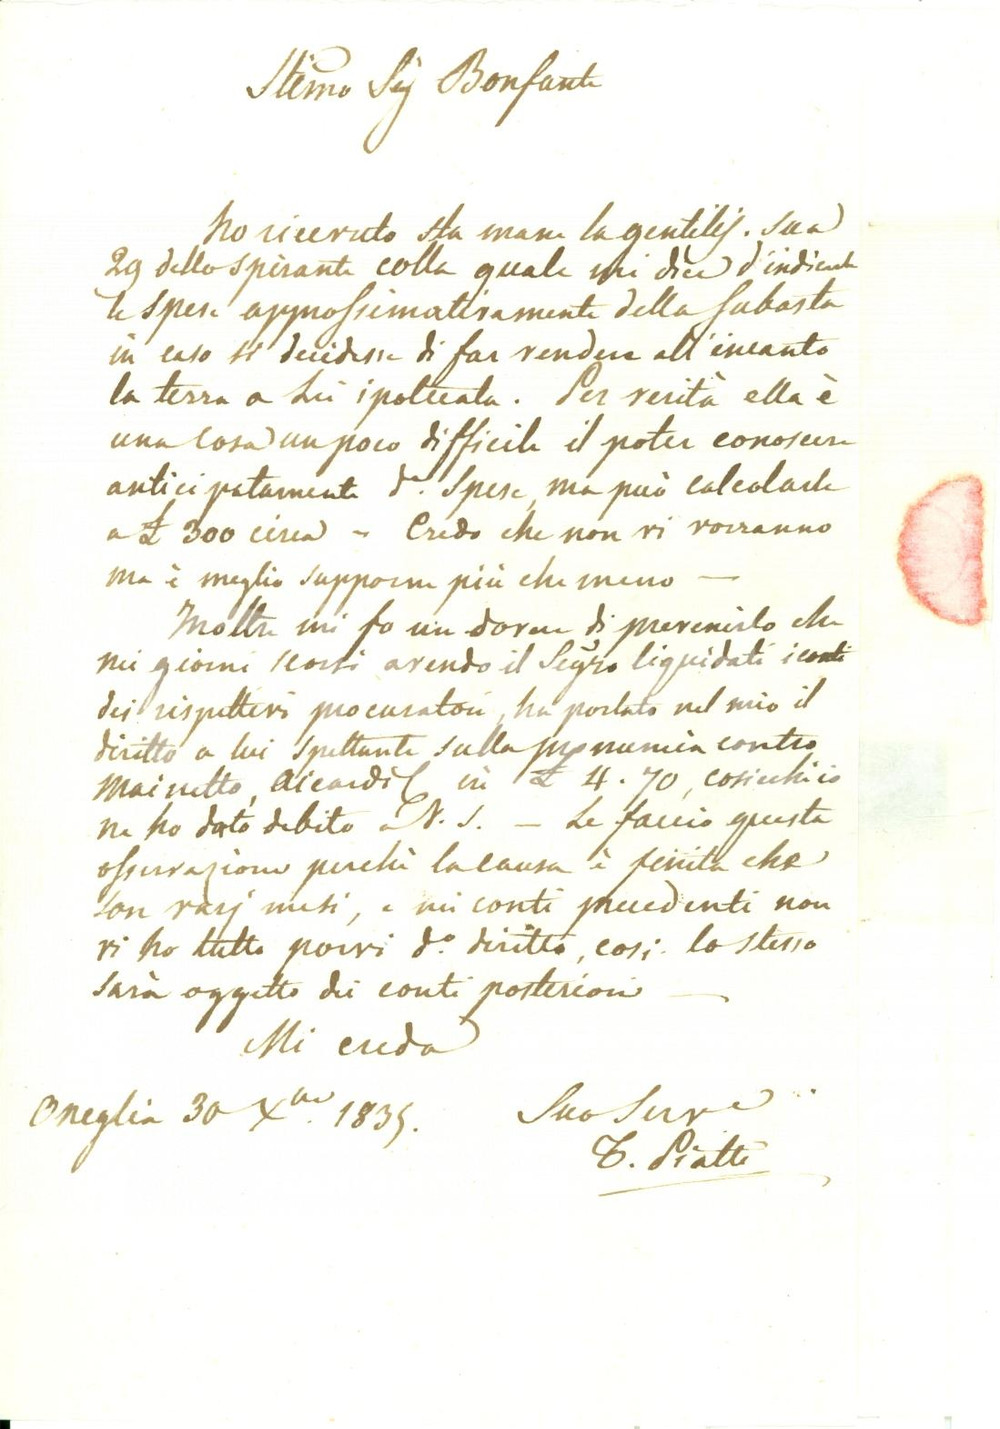 Stimo Sig Bonfante
ho ricevuto sta mane la gentilis. sua
29 dello spirante colla quale mi dice d'indicarle
le spese approssimativamente della subasta
in caso si decidesse di far vendere all'incanto
la terra a Lei ipotecata. Per verità ella è
una cosa un poco difficile il poter conoscere
anticipatamente d.e spese, ma può calcolarle
a £ 300 circa - Credo che non vi vorranno
ma è meglio supporne più che meno —
Inoltre mi fo un dovere di prevenirlo che
nei giorni scorsi avendo il Segro liquidati i conti
dei rispettivi procuratori, ha portato nel mio il
diritto a lui spettante sulla pronuncia contro
Mainetto, Aicardi in £ 4.70, cosicchè io
ne ho dato debito a V. S. — Le faccio questa
osservazione perchè la causa è finita che
son varj mesi, e nei conti precedenti non
vi ho tutto porvi d.o diritto, così lo stesso
sarà oggetto dei conti posteriori —
Mi creda
Oneglia 30 Xbre 1835.
Suo Serv e
T. Piatti